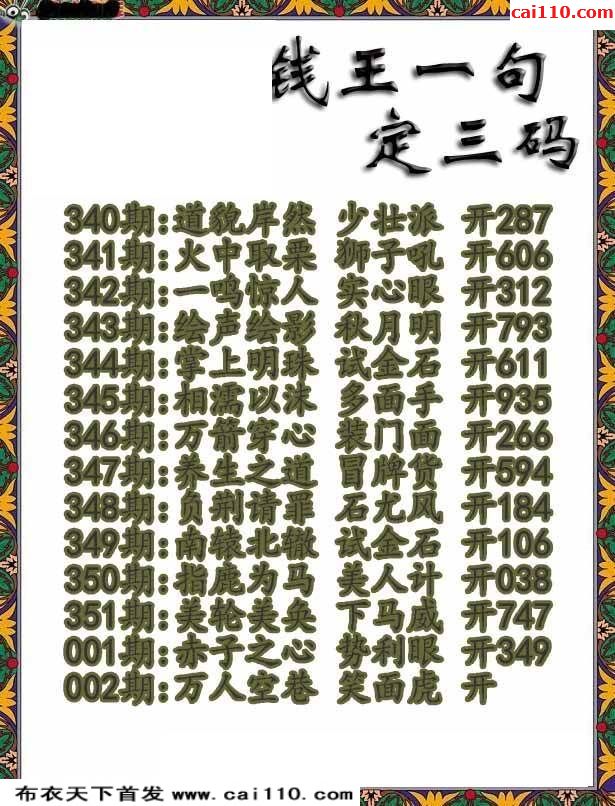 cai110.com
钱王一句
定三码
340期:道貌岸然 少壮派 开287
341期:火中取栗 狮子吼 开606
342期:一鸣惊人 实心眼 开312
343期:绘声绘影 秋月明 开793
344期:掌上明珠 试金石 开611
345期:相濡以沫 多面手 开935
346期:万箭穿心 装门面 开266
347期:养生之道 冒牌货 开594
348期:负荆请罪 石尤风 开184
349期:南辕北辙 试金石 开106
350期:指鹿为马 美人计 开038
351期:美轮美奂 下马威 开747
001期:赤子之心 势利眼 开349
002期:万人空巷 笑面虎 开
布衣天下首发 www.cai110.com